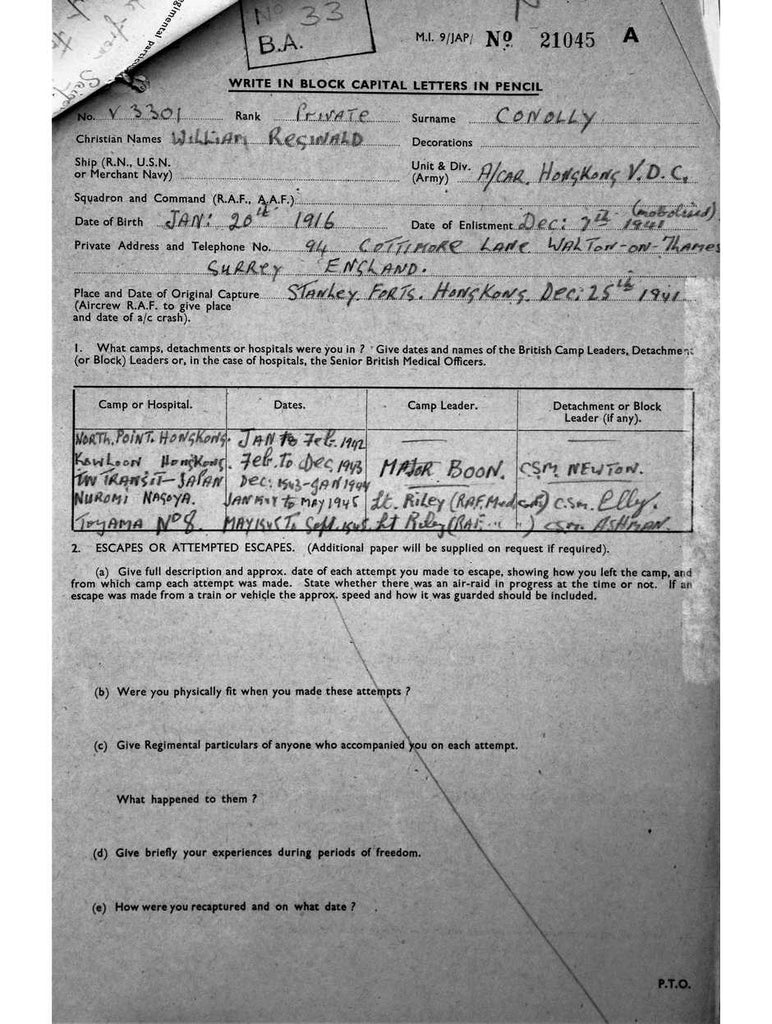 No 33
B.A.
M.I. 9/JAP/ No 21045 A
WRITE IN BLOCK CAPITAL LETTERS IN PENCIL
No. V 3301 Rank PRIVATE Surname CONOLLY
Christian Names WILLIAM REGINALD Decorations
Ship (R.N., U.S.N. or Merchant Navy) Unit & Div. (Army) A/CAR. HONGKONG V.D.C.
Squadron and Command (R.A.F., A.A.F.)
Date of Birth JAN: 20th 1916 Date of Enlistment Dec: 7th 1941 (mobolised)
Private Address and Telephone No. 94 COTTIMORE LANE WALTON-ON-THAMES
SURREY ENGLAND.
Place and Date of Original Capture STANLEY FORTS. HONGKONG. DEC: 25th 1941
(Aircrew R.A.F. to give place
and date of a/c crash).
1. What camps, detachments or hospitals were you in ? Give dates and names of the British Camp Leaders, Detachment
(or Block) Leaders or, in the case of hospitals, the Senior British Medical Officers.
Camp or Hospital. Dates. Camp Leader. Detachment or Block Leader (if any).
NORTH. POINT. HONGKONG. JAN to Feb. 1942
KOWLOON HONGKONG. Feb. to Dec 1943 MAJOR BOON. CSM NEWTON.
IN TRANSIT - JAPAN Dec: 1943-JAN 1944
NUROMI NAGOYA. JAN 1944 to MAY 1945 Lt. Riley (RAF. Med) CSM. Elly.
TOYAMA No 8. MAY 1945 To Sept. 1945. Lt Riley (RAF. " ") CSM. ASHMAN.
2. ESCAPES OR ATTEMPTED ESCAPES. (Additional paper will be supplied on request if required).
(a) Give full description and approx. date of each attempt you made to escape, showing how you left the camp, and
from which camp each attempt was made. State whether there was an air-raid in progress at the time or not. If an
escape was made from a train or vehicle the approx. speed and how it was guarded should be included.
(b) Were you physically fit when you made these attempts ?
(c) Give Regimental particulars of anyone who accompanied you on each attempt.
What happened to them ?
(d) Give briefly your experiences during periods of freedom.
(e) How were you recaptured and on what date ?
P.T.O.